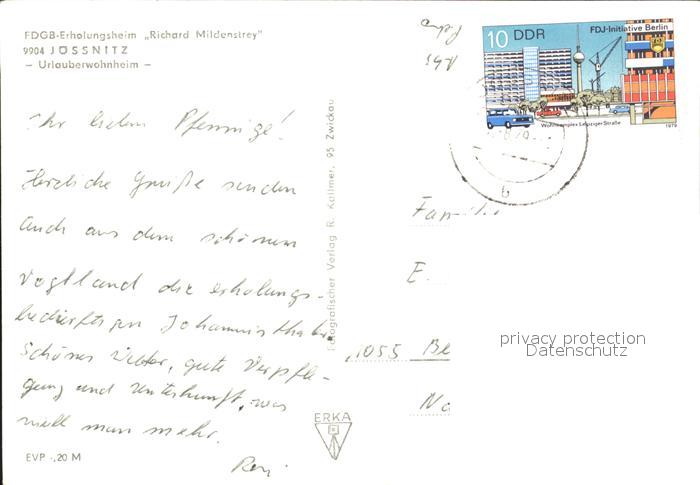 FDGB-Erholungsheim „Richard Mildenstrey"
9904 JÖSSNITZ
– Urlauberwohnheim –
Ihr lieben Pfennige!
Herzliche Grüße senden
auch aus dem schönen
Vogtland die erholungs-
bedürftigen
Schönes Wetter, gute Verpfle-
gung und Unterkunft, was
will man mehr.
EVP -,20 M
Fotografischer Verlag R. Kallmer, 95 Zwickau
ERKA
10 DDR
FDJ-Initiative Berlin
Wohnkomplex Leipziger Straße
1979
b
Familie
E.
1055 Be
Na
privacy protection
Datenschutz